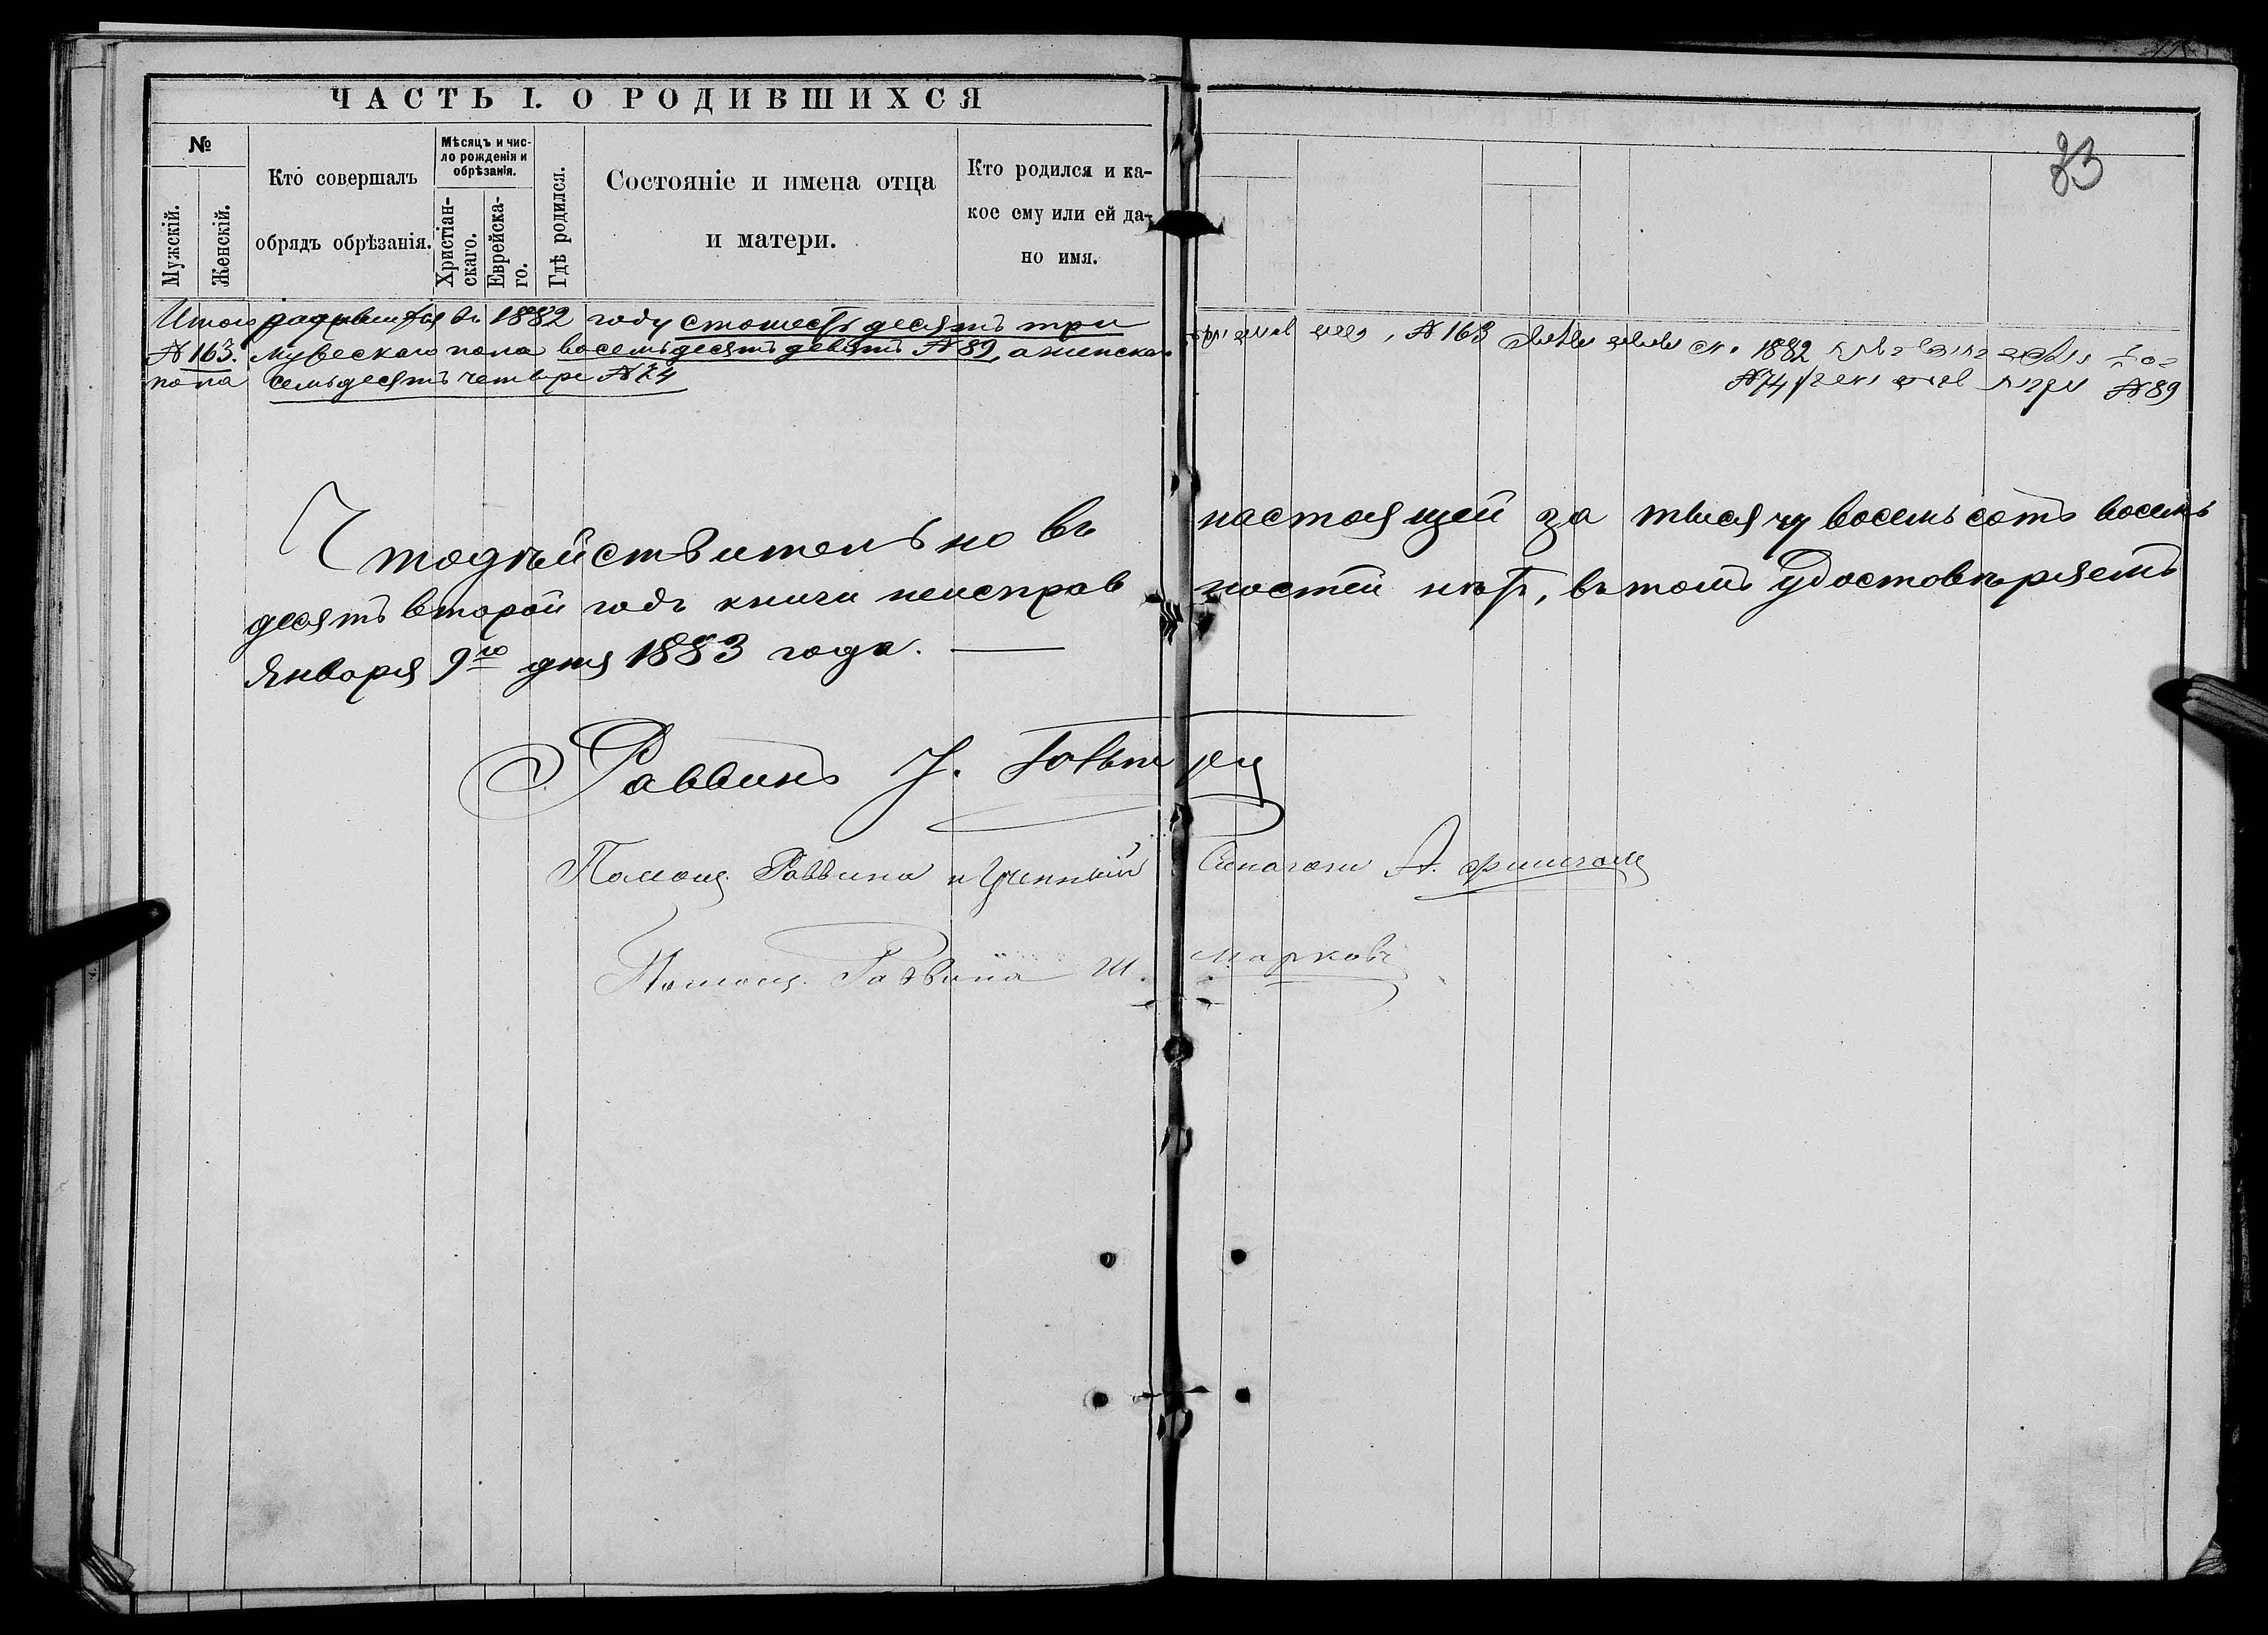 ЧАСТЬ I. О РОДИВШИХСЯ
№
Мужскій.
Женскій.
Кто совершалъ
обрядъ обрѣзанія.
Мѣсяцъ и чис-
ло рожденія и
обрѣзанія.
Христіан-
скаго.
Еврейска-
го.
Гдѣ родился.
Состояніе и имена отца
и матери.
Кто родился и ка-
кое ему или ей да-
но имя.
Итого родившихся въ 1882 году сто шестьдесятъ три
№ 163. Мужескаго пола восемьдесятъ девять № 89, а женскаго
пола семьдесятъ четыре № 74
83
№ 163 1882
№ 74 № 89
Что дѣйствительно въ настоящей за тысячу восемьсотъ восемь
десятъ второй годъ книги неисправностей нѣтъ, въ томъ удостовѣряемъ
Января 9го дня 1883 года.
Раввинъ
Помощ. Раввина и Ученный Синагоги А.
Помощ. Раввина Ш. Марковъ